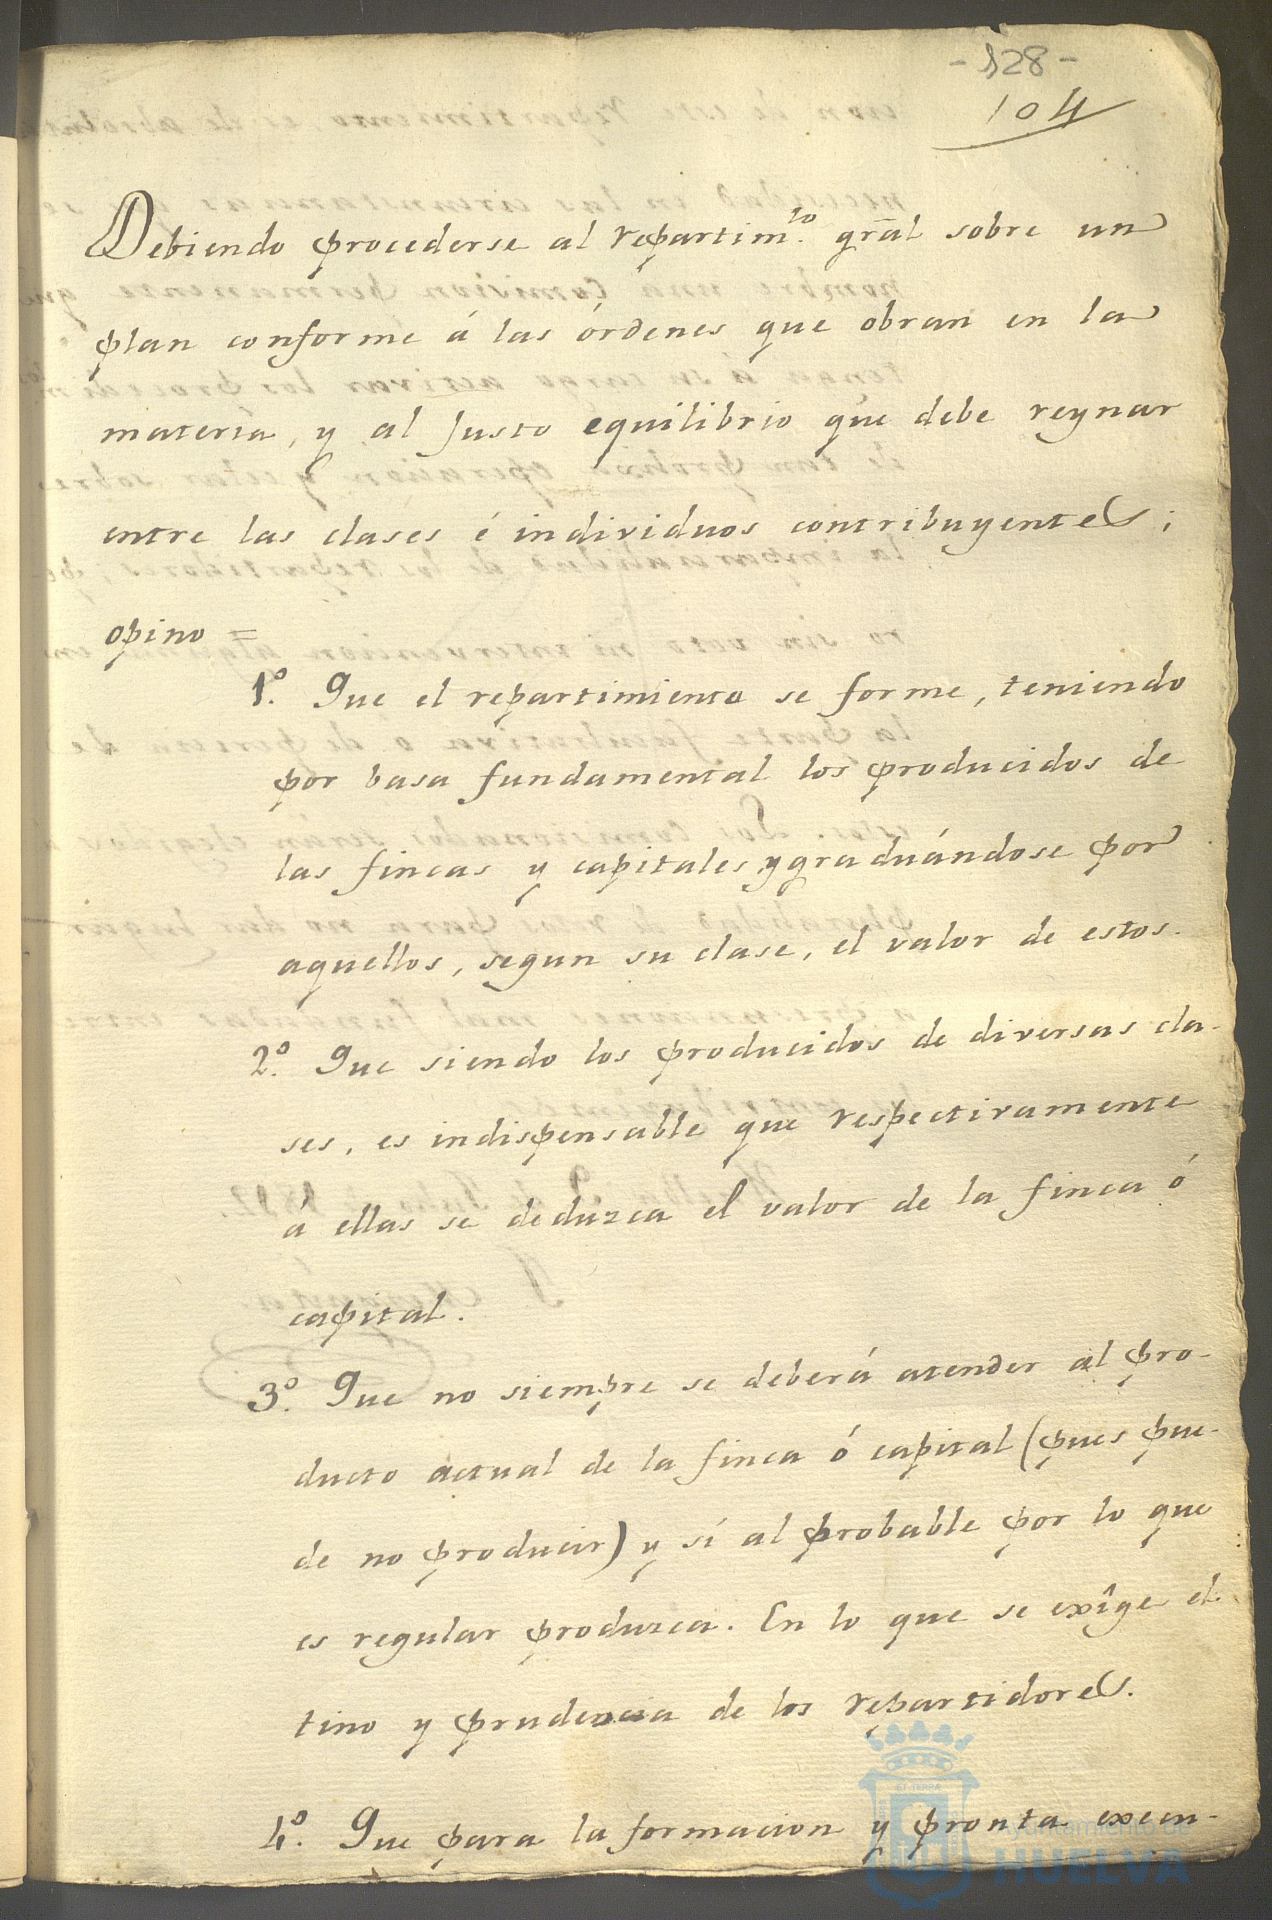 - 128 -
104
Debiendo procederse al repartim.to gral sobre un
plan conforme á las órdenes que obran en la
materia, y al justo equilibrio que debe reynar
entre las clases é individuos contribuyentes;
opino =
1.º Que el repartimiento se forme, teniendo
por basa fundamental los producidos de
las fincas y capitales, y graduándose por
aquellos, segun su clase, el valor de estos.
2.º Que siendo los producidos de diversas cla-
ses, es indispensable que respectivamente
á ellas se deduzca el valor de la finca ó
capital.
3.º Que no siempre se deberá atender al pro-
ducto actual de la finca ó capital (pues pue-
de no producir) y sí al probable por lo que
es regular produzca. En lo que se exîge el
tino y prudencia de los repartidores.
4.º Que para la formacion y pronta execu-
Ayuntamiento de
HUELVA